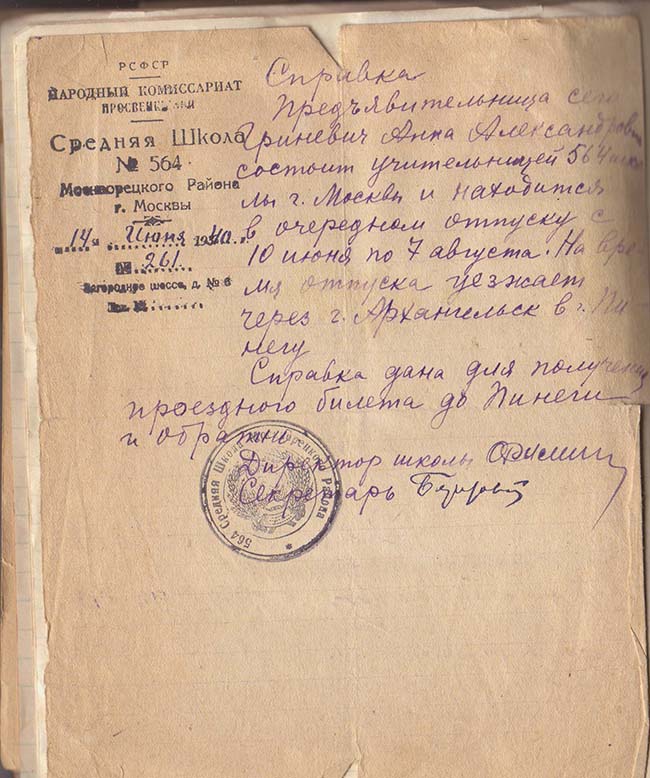 РСФСР
НАРОДНЫЙ КОМИССАРИАТ
ПРОСВЕЩЕНИЯ
Средняя Школа
№ 564
Москворецкого Района
г. Москвы
14 Июня 1940 г.
№ 261
Загородное шоссе, д. № 6
Тел. №
Справка
Предъявительница сего
Гриневич Анна Александровна
состоит учительницей 564 шко-
лы г. Москвы и находится
в очередном отпуску с
10 июня по 7 августа. На вре-
мя отпуска уезжает
через г. Архангельск в г. Пи-
негу
Справка дана для получения
проездного билета до Пинеги
и обратно
Директор школы
Секретарь
564 Средняя Школа Москворецкого Района